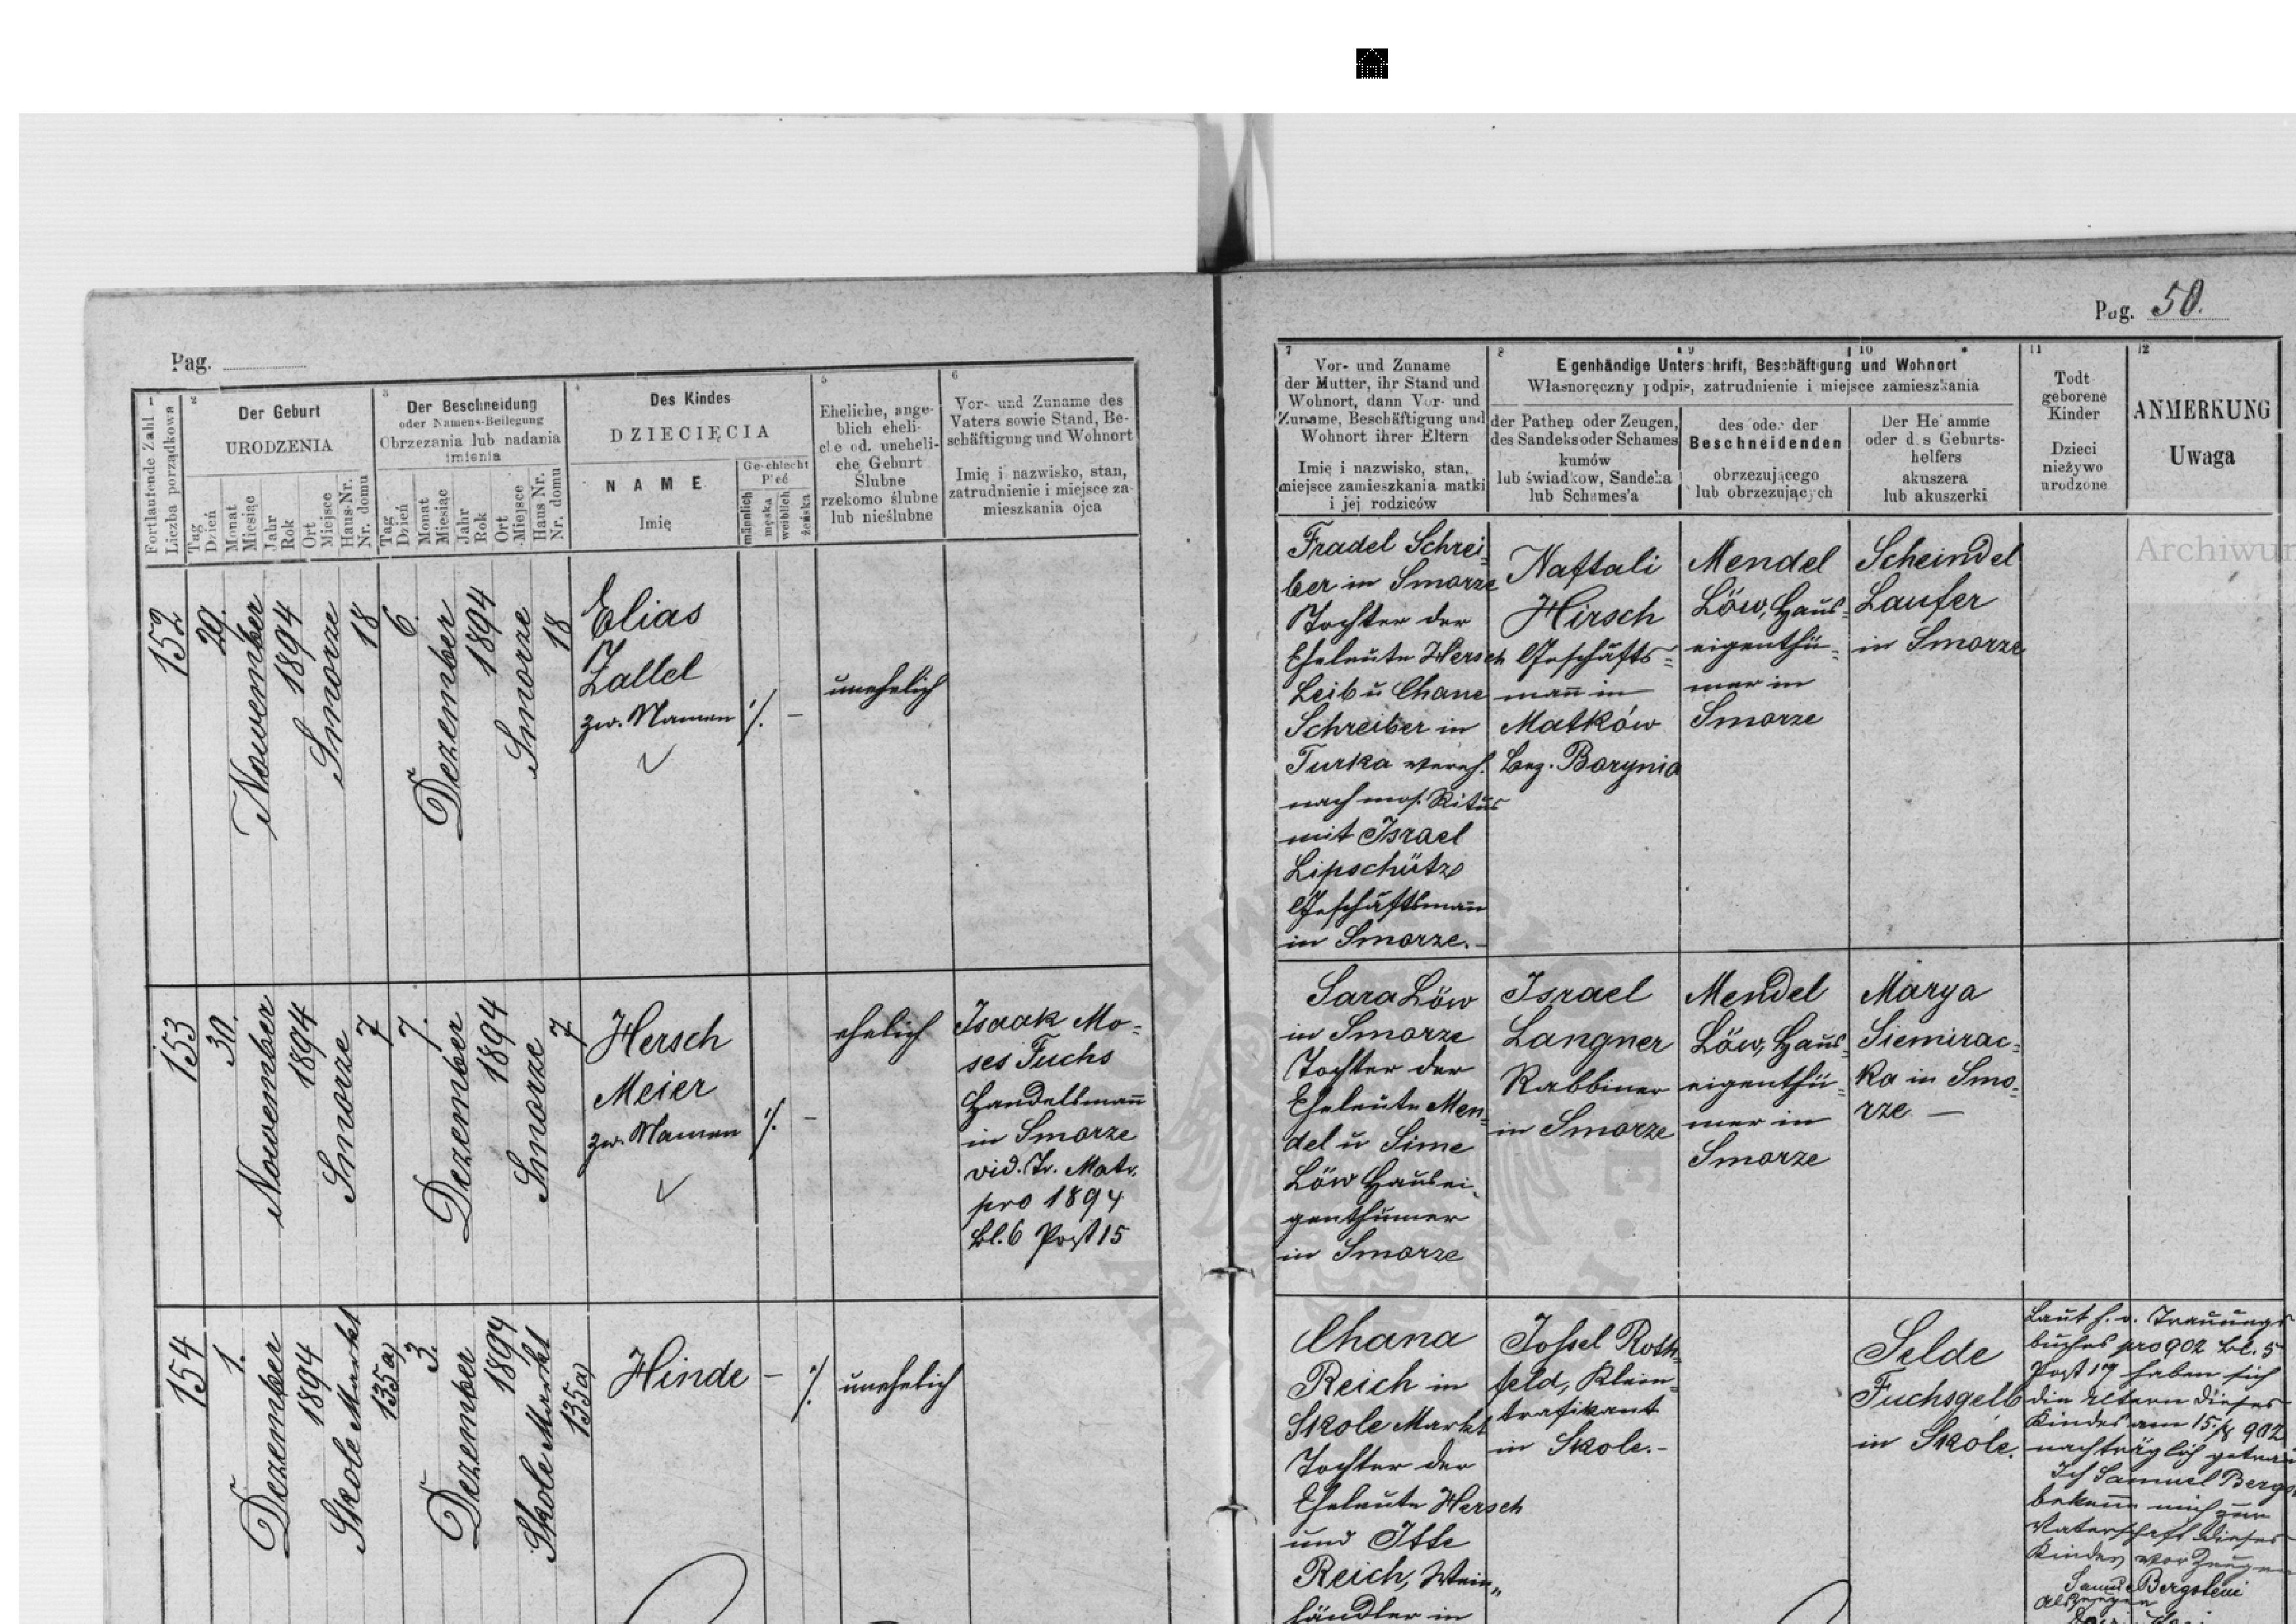 Pag. 50.
Pag.
1
Fortlaufende Zahl
Liczba porządkowa
2
Der Geburt
URODZENIA
Tag
Dzień
Monat
Miesiąc
Jahr
Rok
Ort
Miejsce
Haus-Nr.
Nr. domu
3
Der Beschneidung
oder Namens-Beilegung
Obrzezania lub nadania
imienia
Tag
Dzień
Monat
Miesiąc
Jahr
Rok
Ort
Miejsce
Haus Nr.
Nr. domu
4
Des Kindes
DZIECIĘCIA
NAME
Imię
Geschlecht
Płeć
männlich
męska
weiblich
żeńska
5
Eheliche, ange-
blich eheli-
che od. uneheli-
che Geburt
Ślubne
rzekomo ślubne
lub nieślubne
6
Vor- und Zuname des
Vaters sowie Stand, Be-
schäftigung und Wohnort
Imię i nazwisko, stan,
zatrudnienie i miejsce za-
mieszkania ojca
7
Vor- und Zuname
der Mutter, ihr Stand und
Wohnort, dann Vor- und
Zuname, Beschäftigung und
Wohnort ihrer Eltern
Imię i nazwisko, stan,
miejsce zamieszkania matki
i jej rodziców
8
9
10
Eigenhändige Unterschrift, Beschäftigung und Wohnort
Własnoręczny podpis, zatrudnienie i miejsce zamieszkania
der Pathen oder Zeugen,
des Sandeks oder Schames
kumów
lub świadkow, Sandeka
lub Schames'a
des oder der
Beschneidenden
obrzezującego
lub obrzezujących
Der Hebamme
oder des Geburts-
helfers
akuszera
lub akuszerki
11
Todt
geborene
Kinder
Dzieci
nieżywo
urodzone
12
ANMERKUNG
Uwaga
152
29.
November
1894
Smorze
18
6.
Dezember
1894
Smorze
18
Elias
Zallel
zw. Namen
unehelich
Fradel Schrei-
ber in Smorze
Tochter der
Eheleute Hersch
Leib u Chane
Schreiber in
Turka vereh.
nach mos. Ritus
mit Israel
Lipschütz
Geschäftsmann
in Smorze.-
Naftali
Hirsch
Geschäfts-
mann in
Matków
Bez. Borynia
Mendel
Löw, Haus-
eigenthü-
mer in
Smorze
Scheindel
Laufer
in Smorze
Archiwu
153
30.
November
1894
Smorze
7
7.
Dezember
1894
Smorze
7
Hersch
Meier
zw. Namen
ehelich
Isaak Mo-
ses Fuchs
Handelsmann
in Smorze
vid. Tr. Matr.
pro 1894
Bl. 6 Post 15
Sara Löw
in Smorze
Tochter der
Eheleute Men-
del u Sime
Löw Hausei-
genthümer
in Smorze
Israel
Langner
Rabbiner
in Smorze
Mendel
Löw, Haus-
eigenthü-
mer in
Smorze
Marya
Siemirac-
ka in Smo-
rze —
154
1.
Dezember
1894
Skole Markt
135a)
3.
Dezember
1894
Skole Markt
135a)
Hinde
unehelich
Chana
Reich in
Skole Markt
Tochter der
Eheleute Hersch
und Itte
Reich, Wein-
händler in
Jossel Roth-
feld, Klein-
trafikant
in Skole.-
Selde
Fuchsgelb
in Skole.
Laut h. o. Trauungs
buches pro 902 Bl. 5
Post 19 haben sich
die Eltern dieses
Kindes am 902
nachträglich getrau
Ich Samuel Bergs
bekenne mich zur
Vaterschaft dieses
Kindes vor Zeugen
Samuel Bergstein
als Zeugen